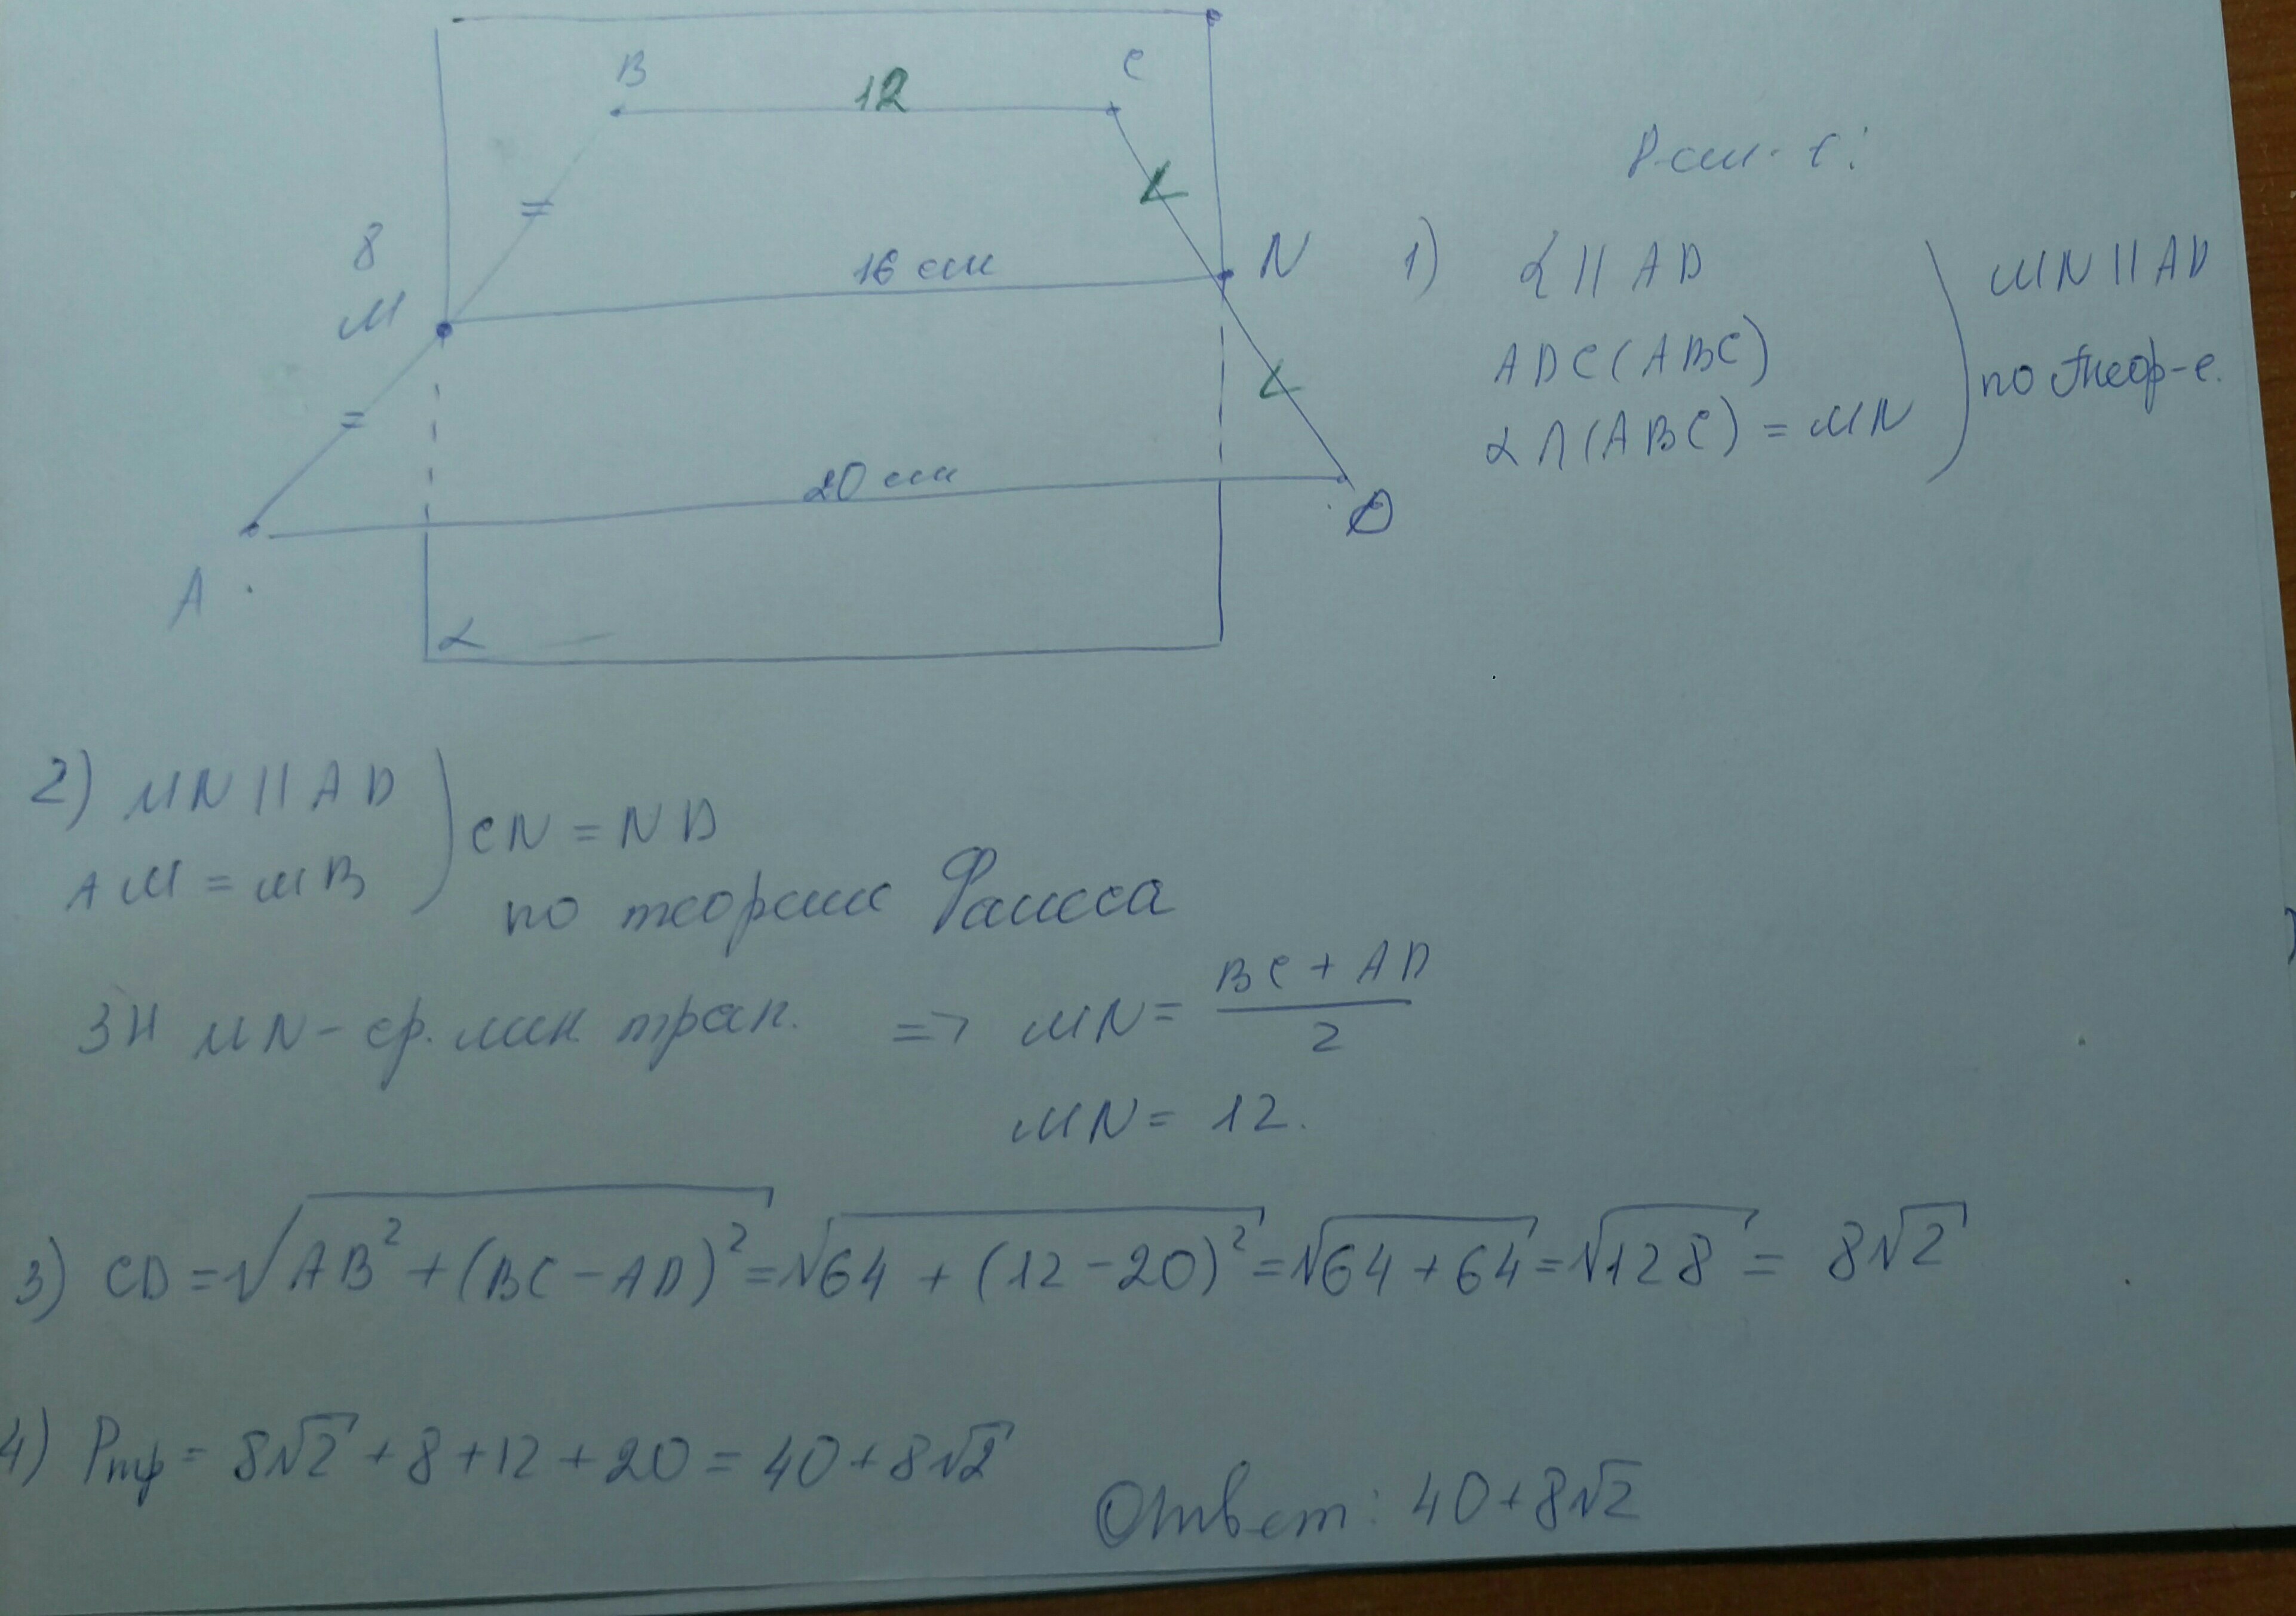 B
12
C
8
M
16 см
N
20 см
A
D
α
Реш-е:
1) α || AD
ADC(ABC)
α ∩ (ABC) = MN
MN || AD
по теор-е.
2) MN || AD
AM = MB
CN = ND
по теореме Фалеса
MN - ср. лин. трап. => MN = \frac{BC + AD}{2}
MN = 12.
3) CD = √(AB² + (BC - AD)²) = √(64 + (12 - 20)²) = √(64 + 64) = √128 = 8√2
4) Pтр = 8√2 + 8 + 12 + 20 = 40 + 8√2
Ответ: 40 + 8√2